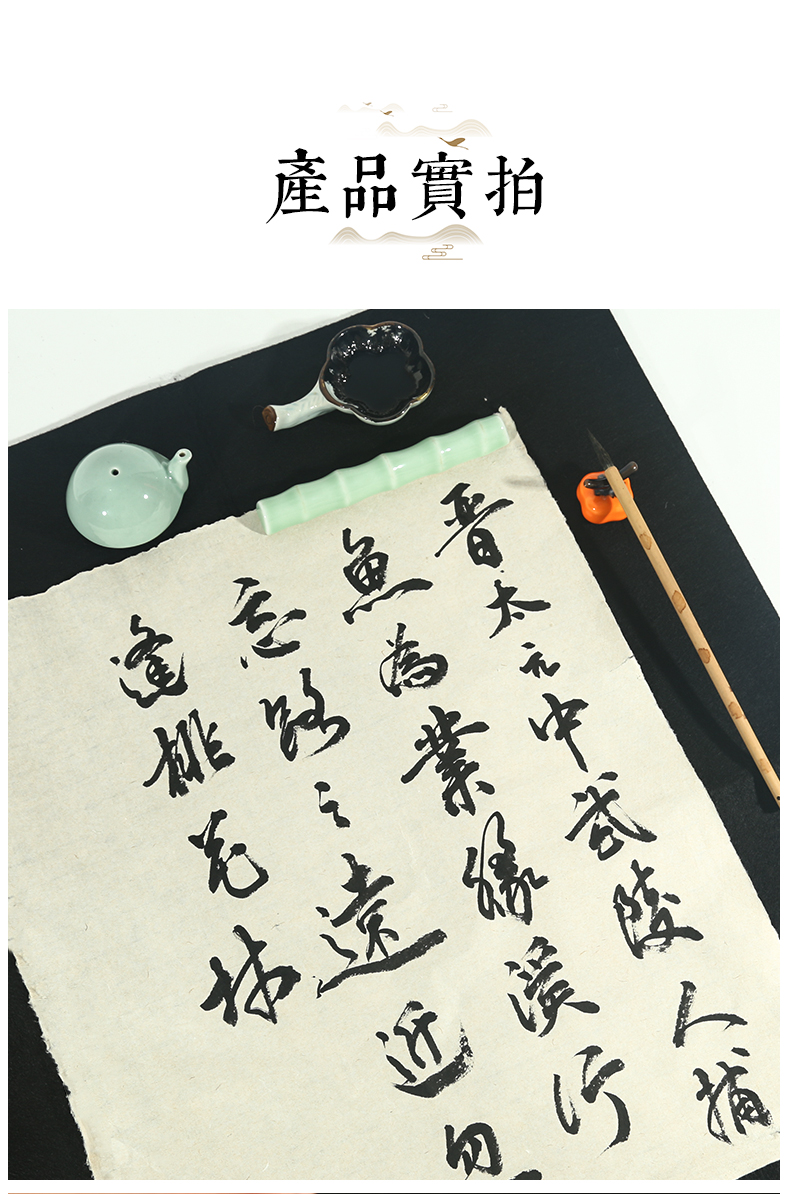 產品實拍
晉太元中武陵人捕
魚為業緣溪行
忘路之遠近忽
逢桃花林